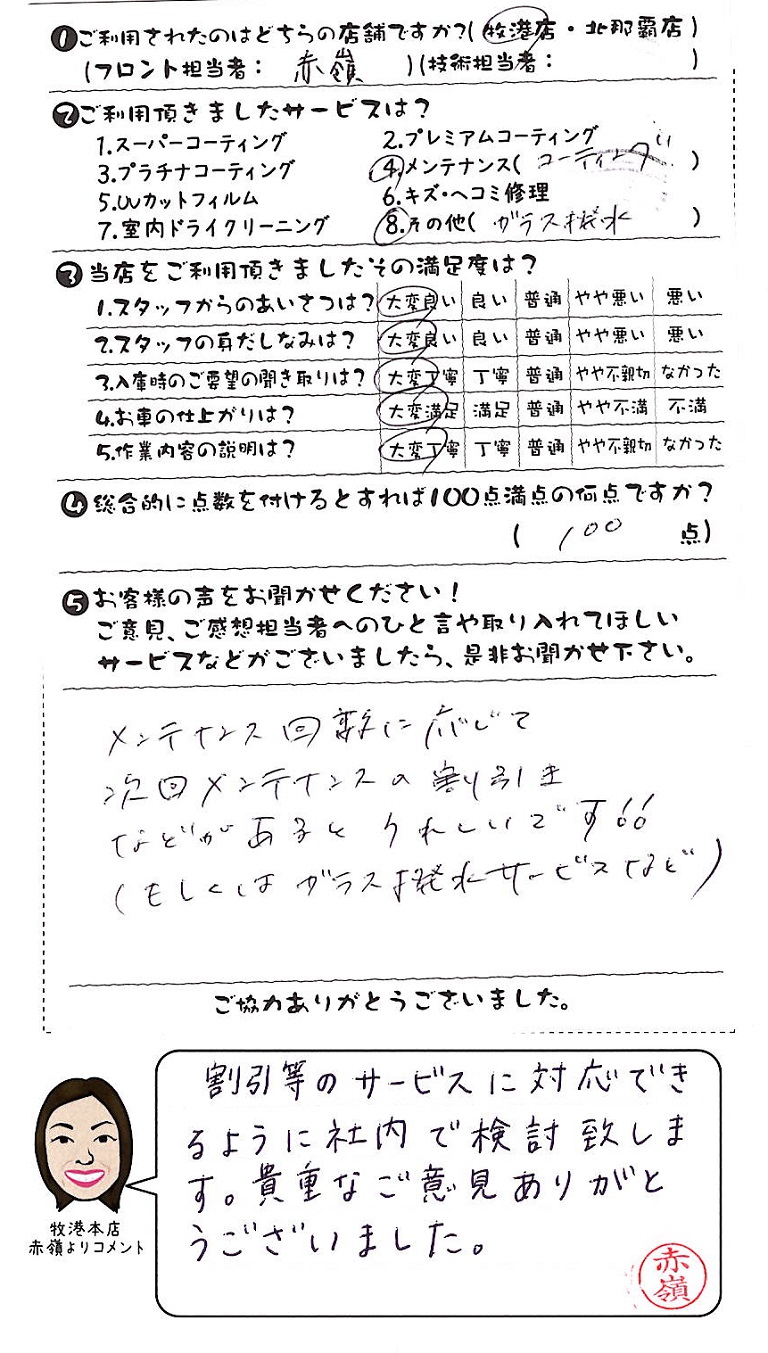 ❶ご利用されたのはどちらの店舗ですか?(牧港店・北那覇店)
(フロント担当者: 赤嶺 )(技術担当者: )
❷ご利用頂きましたサービスは?
1.スーパーコーティング 2.プレミアムコーティング
3.プラチナコーティング 4.メンテナンス( コーティング )
5.UVカットフィルム 6.キズ・ヘコミ修理
7.室内ドライクリーニング 8.その他( ガラス撥水 )
❸当店をご利用頂きましたその満足度は?
1.スタッフからのあいさつは? 大変良い 良い 普通 やや悪い 悪い
2.スタッフの身だしなみは? 大変良い 良い 普通 やや悪い 悪い
3.入庫時のご要望の聞き取りは? 大変丁寧 丁寧 普通 やや不親切 なかった
4.お車の仕上がりは? 大変満足 満足 普通 やや不満 不満
5.作業内容の説明は? 大変丁寧 丁寧 普通 やや不親切 なかった
❹総合的に点数を付けるとすれば100点満点の何点ですか?
( 100 点)
❺お客様の声をお聞かせください!
ご意見、ご感想担当者へのひと言や取り入れてほしい
サービスなどがございましたら、是非お聞かせ下さい。
メンテナンス回数に応じて
次回メンテナンスの割り引き
などがあるとうれしいです!!
(もしくはガラス撥水サービスなど)
ご協力ありがとうございました。
割引等のサービスに対応でき
るように社内で検討致しま
す。貴重なご意見ありがと
うございました。
牧港本店
赤嶺よりコメント
赤嶺